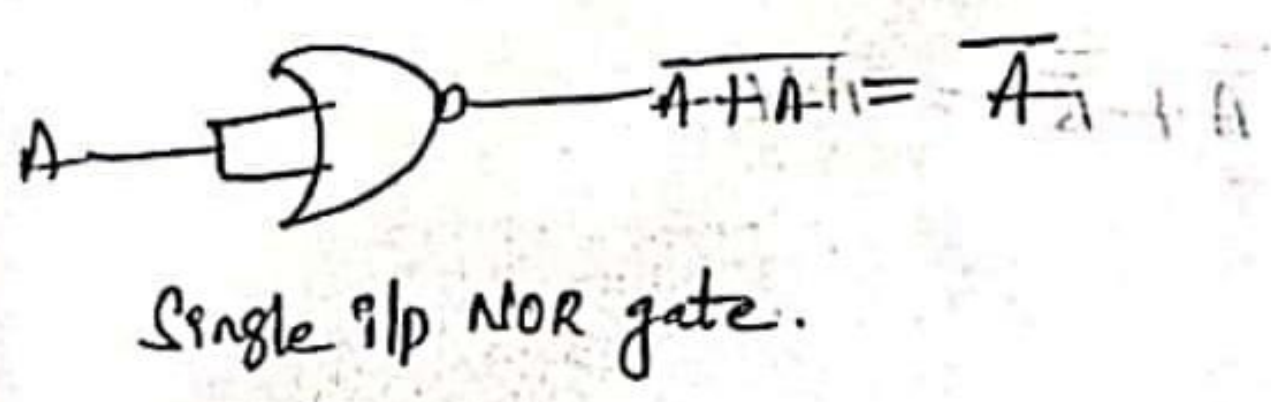 A $\overline{A+A}$ = $\overline{A}$
Single i/p NOR gate.